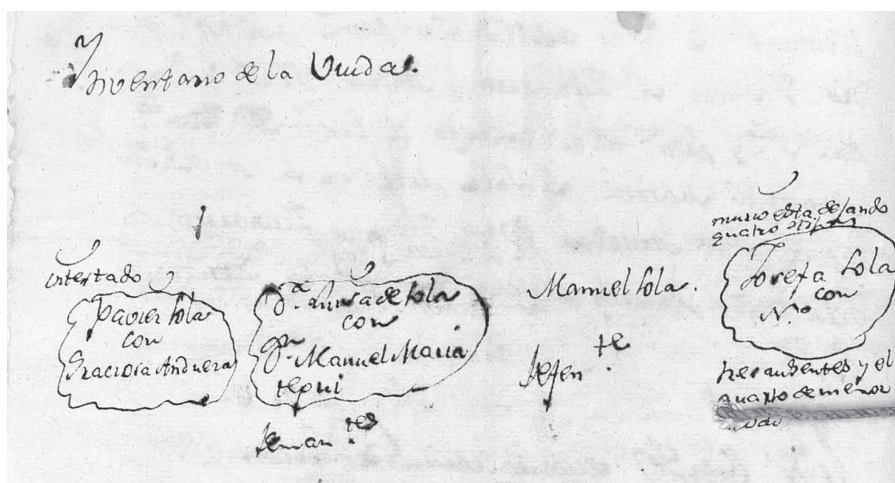 Ynventario de la Viuda.
intestado
Xavier Sola
con
Graciosa Andueza
D.ª Luisa de Sola
con
Dn. Manuel Maria
tegui
Manuel Sola.
murio esta dejando
quatro
Josefa Sola
con
N.º
tres ausentes y el
quarto de menor